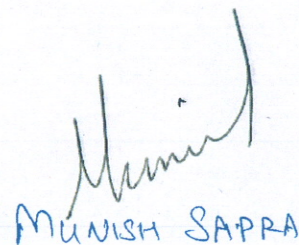 Munish
MUNISH SAPRA